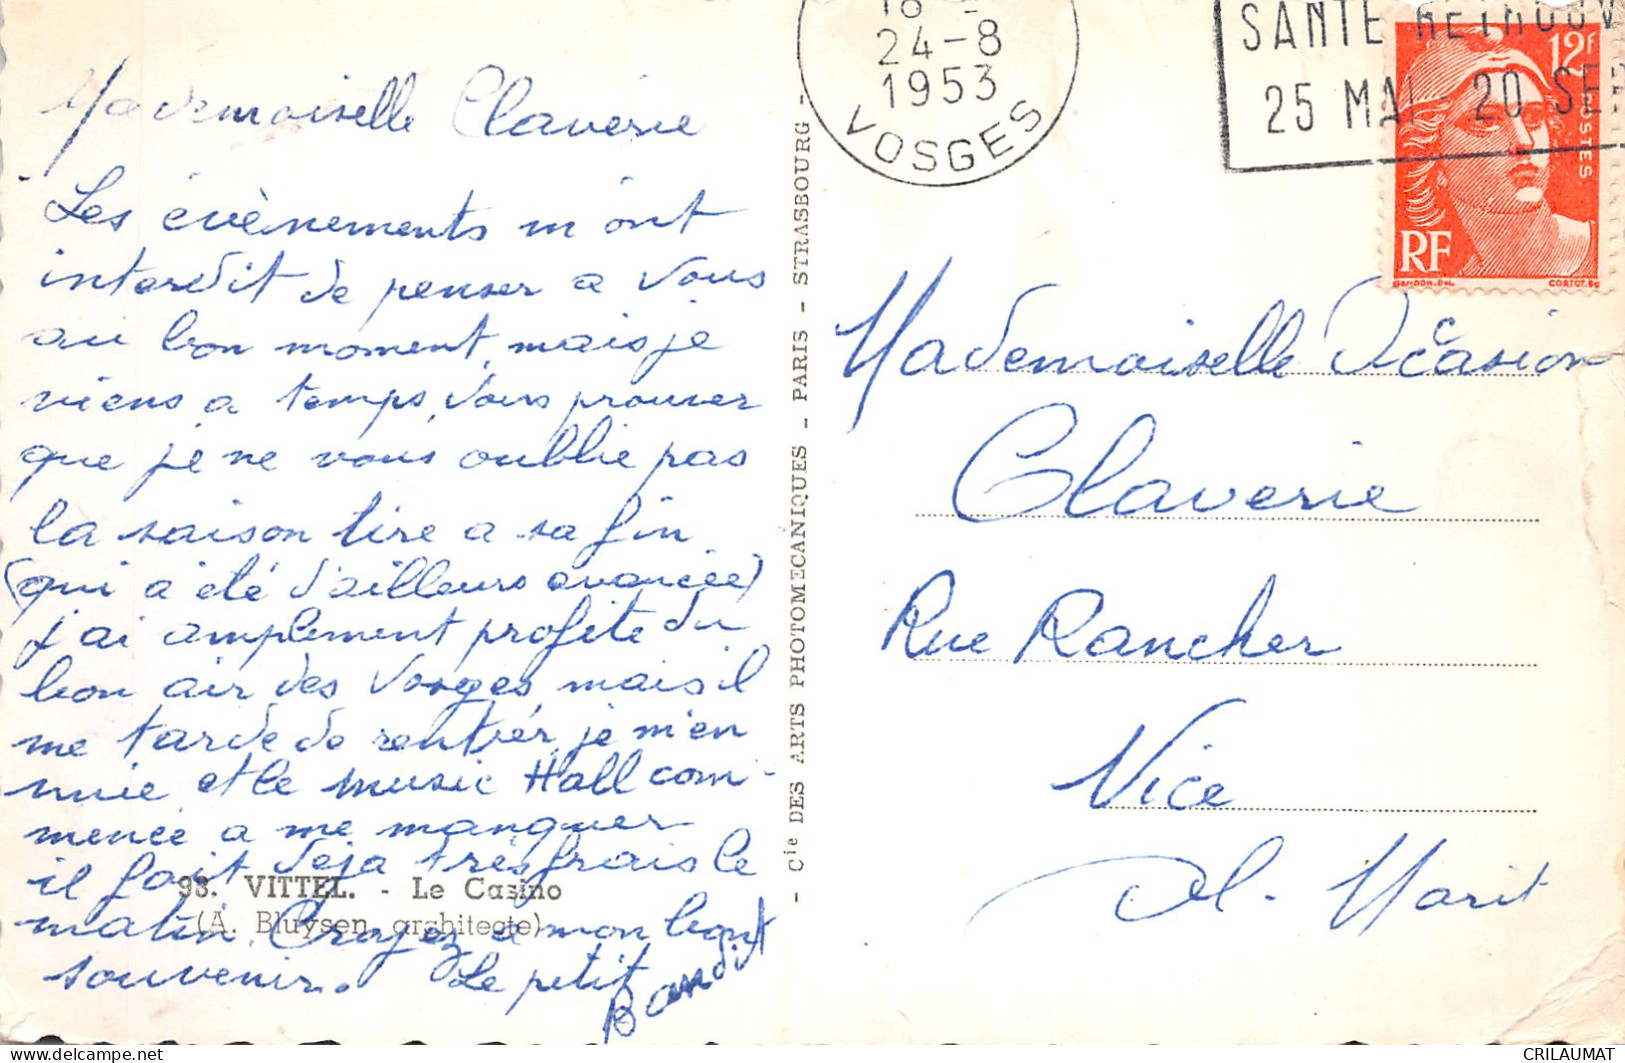 Mademoiselle Claverie
Les évènements m'ont
interdit de penser a vous
au bon moment, mais je
viens a temps, vous prouver
que je ne vous oublie pas
la saison tire a sa fin
(qui a été d'ailleurs avancée)
j'ai amplement profite du
bon air des Vosges, mais il
me tarde de rentrer, je m'en
nuie et le music Hall com-
mence a me manquer
il fait deja très frais le
matin. Croyez a mon bon
souvenir. Le petit
Bandit
98. VITTEL. - Le Casino
(A. Bluysen, architecte)
- Cie DES ARTS PHOTOMECANIQUES - PARIS - STRASBOURG -
18
24-8
1953
VOSGES
SANTE RETROUV
25 MAI 20 SEP
12F
POSTES
RF
GANDON. DEL.
CORTOT. SC
Mademoiselle
Claverie
Rue Rancher
Nice
Al. Marit
CRILAUMAT